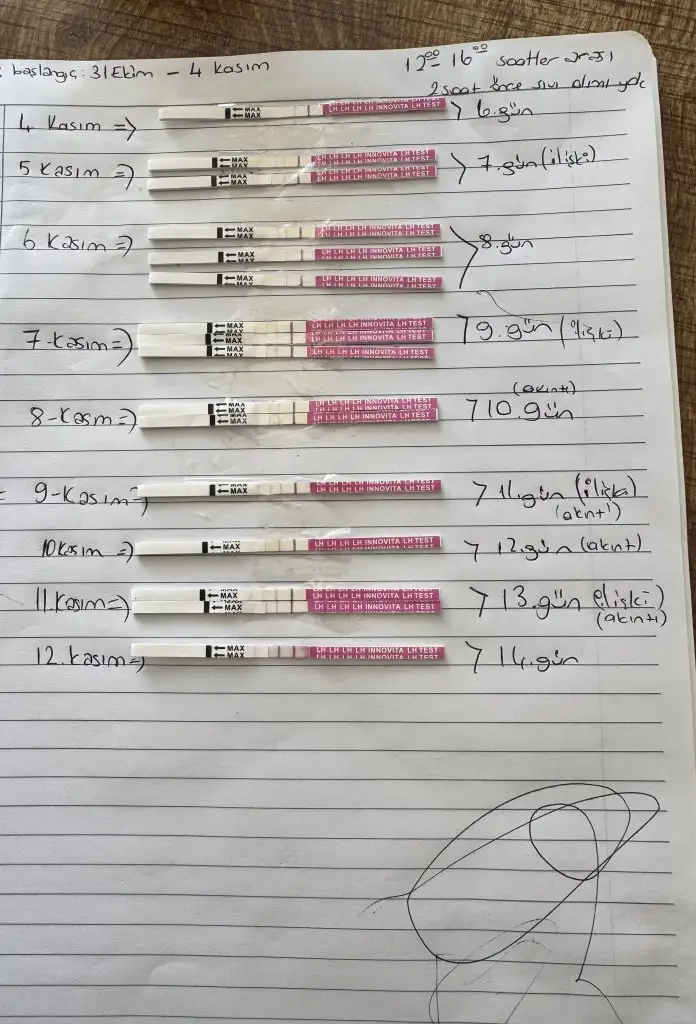 başlangıç: 31 Ekim - 4 Kasım
12⁰⁰ - 16⁰⁰ saatler arası
2 saat önce sıvı alımı yok
4 Kasım => MAX MAX LH LH LH LH INNOVITA LH TEST > 6.gün
5 Kasım => MAX MAX LH LH LH LH INNOVITA LH TEST > 7.gün (ilişki)
6 Kasım => MAX LH LH LH LH INNOVITA LH TEST
MAX LH LH LH LH INNOVITA LH TEST > 8.gün
MAX LH LH LH LH INNOVITA LH TEST
7-Kasım => MAX MAX MAX LH LH LH LH INNOVITA LH TEST > 9.gün (ilişki)
(akıntı)
8-Kasım => MAX MAX LH LH LH LH INNOVITA LH TEST > 10.gün
9-Kasım => MAX MAX LH LH LH LH INNOVITA LH TEST > 11.gün (ilişki)
(akıntı)
10 Kasım => MAX LH LH LH LH INNOVITA LH TEST > 12.gün (akıntı)
11.Kasım => MAX MAX LH LH LH LH INNOVITA LH TEST > 13.gün (ilişki)
(akıntı)
12.Kasım => MAX MAX LH LH LH LH INNOVITA LH TEST > 14.gün